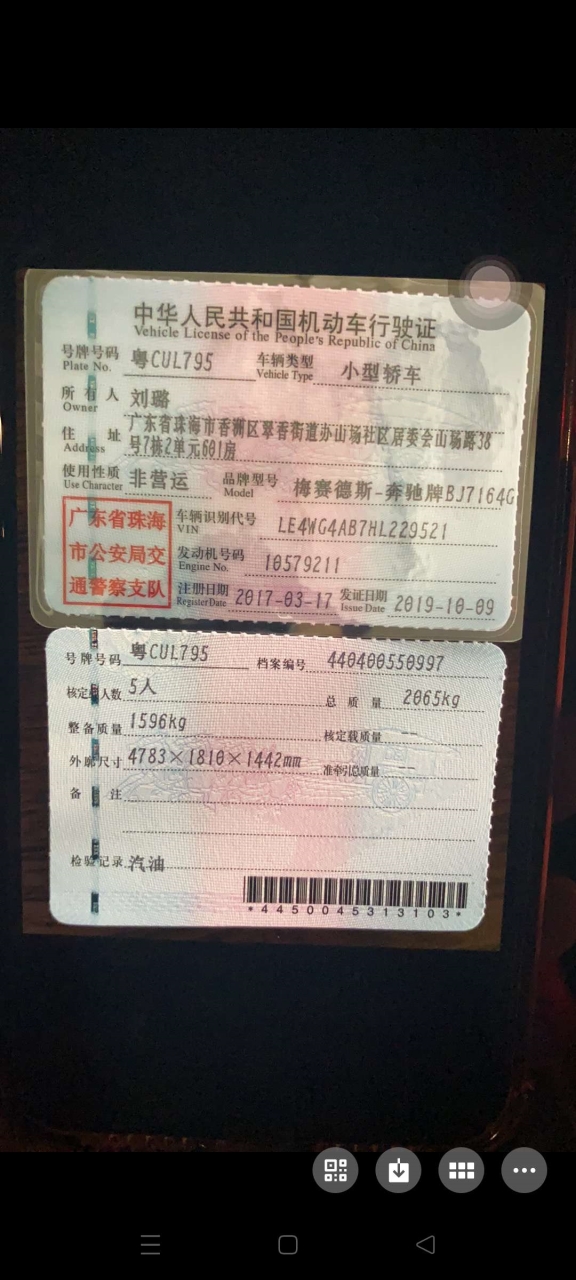 中华人民共和国机动车行驶证
Vehicle License of the People's Republic of China
号牌号码 粤CUL795 车辆类型 小型轿车
Plate No. Vehicle Type
所有人 刘璐
Owner
住址 广东省珠海市香洲区翠香街道办山场社区居委会山场路38
Address 号7栋2单元601房
使用性质 非营运 品牌型号 梅赛德斯-奔驰牌BJ7164G
Use Character Model
广东省珠海
市公安局交
通警察支队
车辆识别代号 LE4WG4AB7HL229521
VIN
发动机号码 10579211
Engine No.
注册日期 2017-03-17 发证日期 2019-10-09
Register Date Issue Date
号牌号码 粤CUL795 档案编号 440400550997
核定人数 5人 总质量 2065kg
整备质量 1596kg 核定载质量 --
外廓尺寸 4783×1810×1442mm 准牵引总质量 --
备注
检验记录 汽油
*4450045313103*